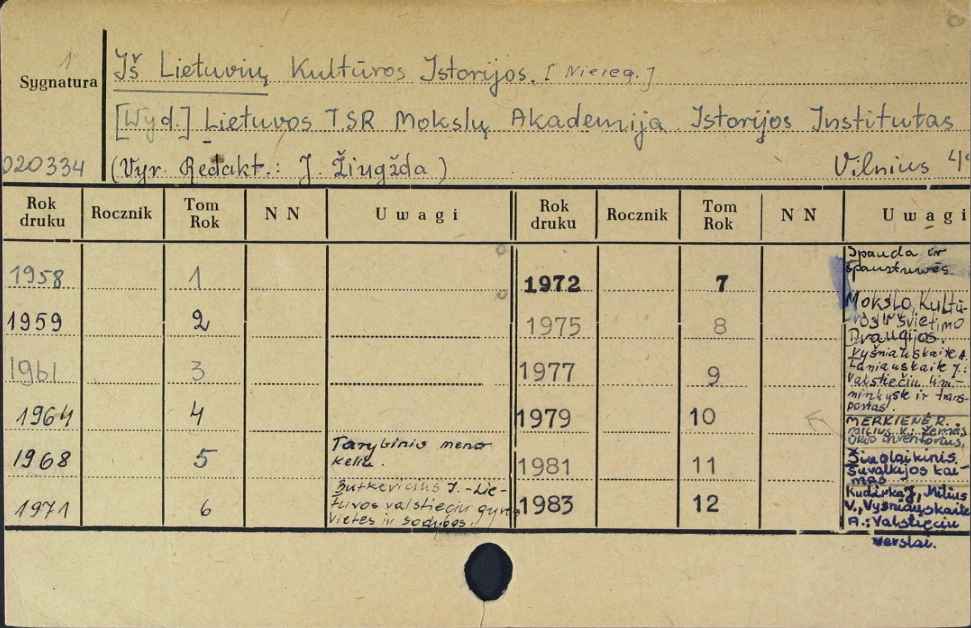 1
Sygnatura
Iš Lietuvių Kultūros Istorijos. [Niereg.]
[Wyd.] Lietuvos TSR Mokslų Akademija Istorijos Institutas
020334
(Vyr. Redakt.: J. Žiugžda)
Vilnius
Rok druku Rocznik Tom Rok NN Uwagi Rok druku Rocznik Tom Rok NN Uwagi
1958 1
1972 7 Spauda ir
spaustuvės.
1959 2
1975 8 Mokslo, Kultū-
ros ir švietimo
Draugijos.
1961 3
1977 9 Vyšniauskaitė A.
J.:
Valstiečių
ninkystė ir trans-
portas.
1964 4
1979 10 MERKIENĖ R.
Milius V.: Žemės
ūkio inventorius.
1968 5 Tarybinio meno
keliu.
1981 11 Šiuolaikinis
Suvalkijos kai-
mas
1971 6 Butkevičius J. - Lie-
tuvos valstiečių gyven
vietės ir sodybos.
1983 12 Kudirka J., Milius
V., Vyšniauskaitė
A.: Valstiečių
verslai.